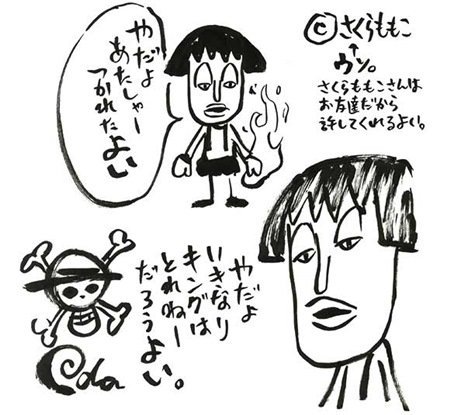 やだよ
あたしゃー
つかれた
よい
©さくらももこ
↑
ウソ。
さくらももこさんは
お友達だから
許してくれるよい。
やだよ
いきなり
キングは
とれねー
だろうよい。
Oda